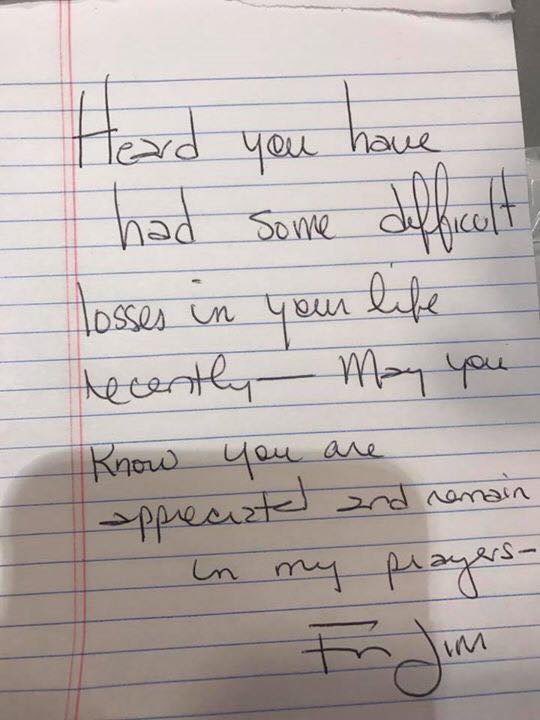 Heard you have
had some difficult
losses in your life
recently— May you
Know you are
appreciated and remain
in my prayers-
Fr Jim